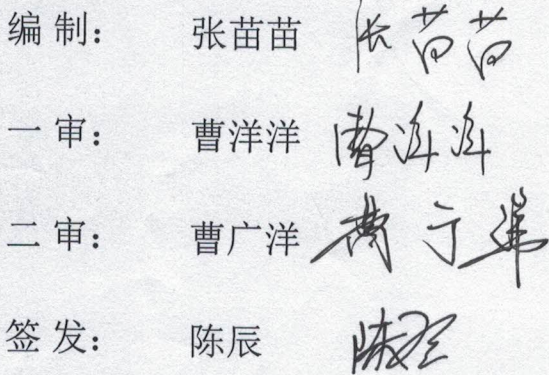 编 制： 张苗苗 张苗苗
一 审： 曹洋洋 曹洋洋
二 审： 曹广洋 曹广洋
签 发： 陈辰 陈辰